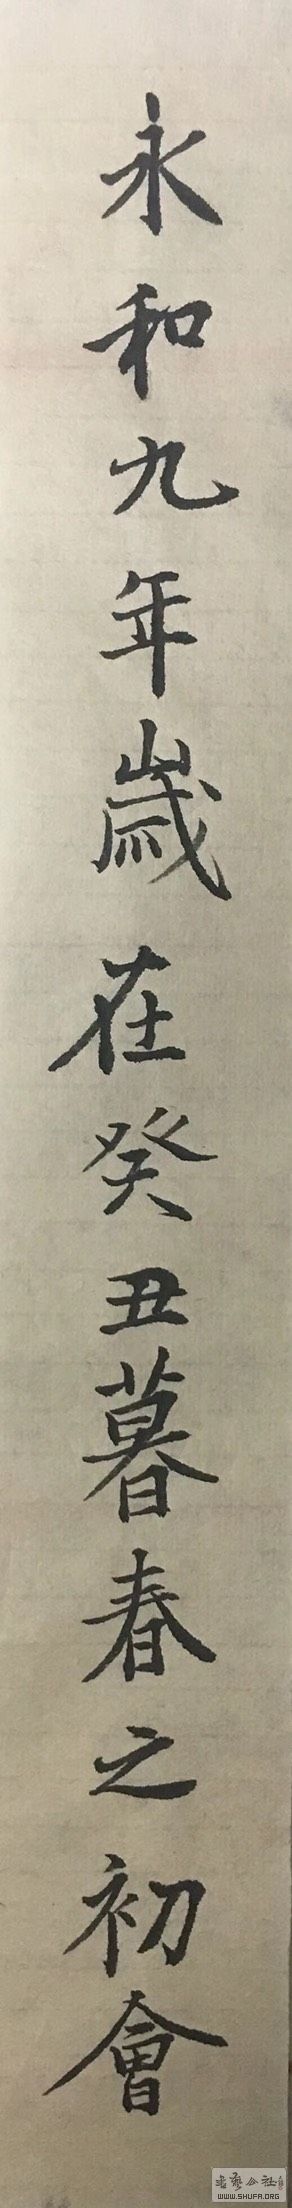 永和九年歲在癸丑暮春之初會
書藝公社
WWW.SHUFA.ORG